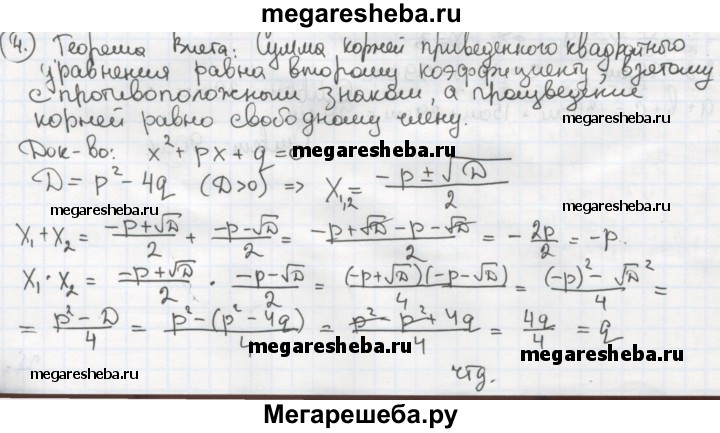 megaresheba.ru
4. Теорема Виета: Сумма корней приведенного квадратного
уравнения равна второму коэффициенту, взятому
с противоположным знаком, а произведение
корней равно свободному члену.
Док-во: x² + px + q = 0
megaresheba.ru
D = p² - 4q (D>0) => X₁,₂ = (-p ± √D)/2
megaresheba.ru
megaresheba.ru
X₁ + X₂ = (-p+√D)/2 + (-p-√D)/2 = (-p+√D-p-√D)/2 = -2p/2 = -p.
X₁ · X₂ = (-p+√D)/2 · (-p-√D)/2 = ((-p+√D)(-p-√D))/4 = ((-p)² - √D²)/4 =
= (p²-D)/4 = (p²-(p²-4q))/4 = (p²-p²+4q)/4 = 4q/4 = q
megaresheba.ru
megaresheba.ru
megaresheba.ru
чтд.
megaresheba.ru
Мегарешеба.ру